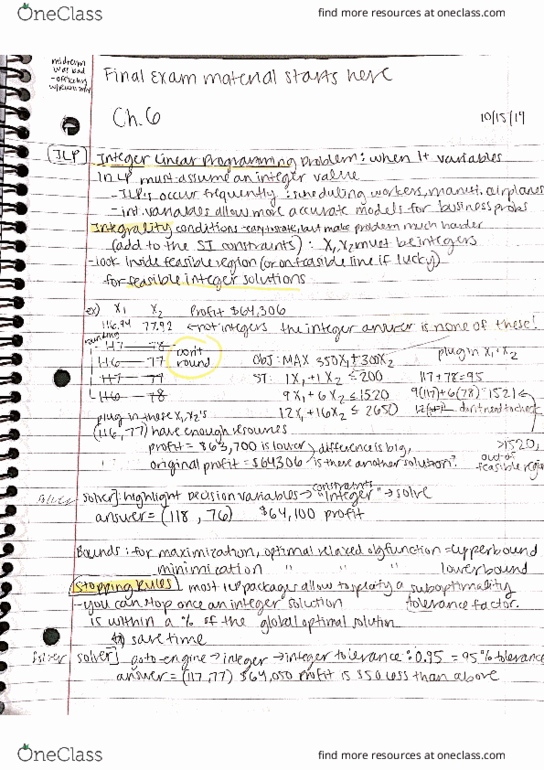 OneClass
find more resources at oneclass.com
midterm
was bad
Final Exam material starts here
Ch. 6
10/15/14
(ILP) Integer Linear Programming problem: when 1+ variables
in LP must assume an integer value
- ILP's occur frequently: scheduling workers, manuf. airplanes
- int. variables allow more accurate models for business probs
Integrality conditions - easy to state, but make problem much harder
(add to the ST constraints): X1, X2 must be integers
- look inside feasible region (or on feasible line if lucky)
for feasible integer solutions
ex) X1 X2 Profit $64,306
116.94 77.92 ← not integers the integer answer is none of these!
rounding
117 78
116 77
117 77
116 78
don't
round
OBJ: MAX 350X1 + 300X2
ST: 1X1 + 1X2 ≤ 200
9X1 + 6X2 ≤ 1520
12X1 + 16X2 ≤ 2650
plug in X1, X2
117+78=95
9(117)+6(78)=1521
don't need to check
>1520,
out of
feasible region
plug in these X1, X2's
(116, 77) have enough resources
profit = $63,700 is lower } difference is big,
original profit = $64306 } is there another solution?
solver]: highlight decision variables → constraints "integer" → solve
answer = (118, 76) $64,100 profit
Bounds: for maximization, optimal relaxed obj function = upper bound
minimication " " " lower bound
Stopping Rules most ILP packages allow to specify a suboptimality
tolerance factor.
- you can stop once an integer solution
is within a % of the global optimal solution
to save time
solver] go to engine → integer → integer tolerance: 0.95 = 95% tolerance
answer = (117, 77) $64,050 profit is $50 less than above
OneClass
find more resources at oneclass.com